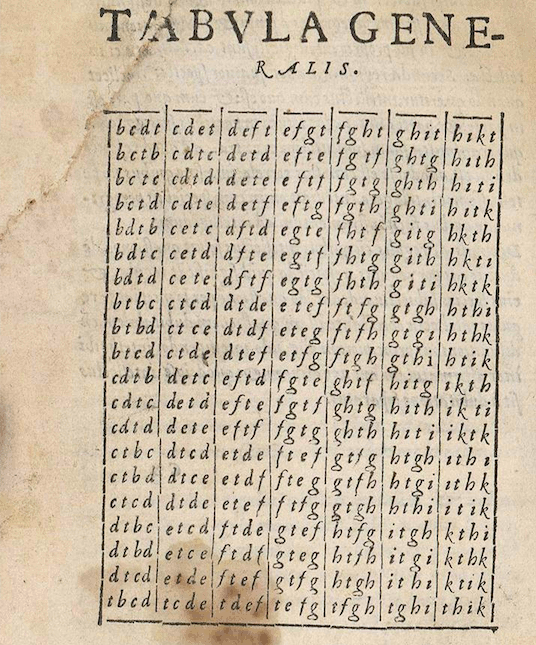 TABVLA GENE-
RALIS.
bcdt cdet deft efgt fght ghit hikt
bctb cdtc detd efte fgtf ghtg hith
bctc cdtd dete eftf fgtg ghth hiti
bctd cdte detf eftg fgth ghti hitk
bdtb cetc dftd egte fhtf gitg hkth
bdtc cetd dfte egtf fhtg gith hkti
bdtd cete dftf egtg fhth giti hktk
btbc ctcd dtde etef ftfg gtgh hthi
btbd ctce dtdf eteg ftfh gtgi hthk
btcd ctde dtef etfg ftgh gthi htik
cdtb detc eftd fgte ghtf hitg ikth
cdtc detd efte fgtf ghtg hith ikti
cdtd dete eftf fgtg ghth hiti iktk
ctbc dtcd etde ftef gtfg htgh ithi
ctbd dtce etdf fteg gtfh htgi ithk
ctcd dtde etef ftfg gtgh hthi itik
dtbc etcd ftde gtef htfg itgh kthi
dtbd etce ftdf gteg htfh itgi kthk
dtcd etde ftef gtfg htgh ithi ktik
tbcd tcde tdef tefg tfgh tghi thik